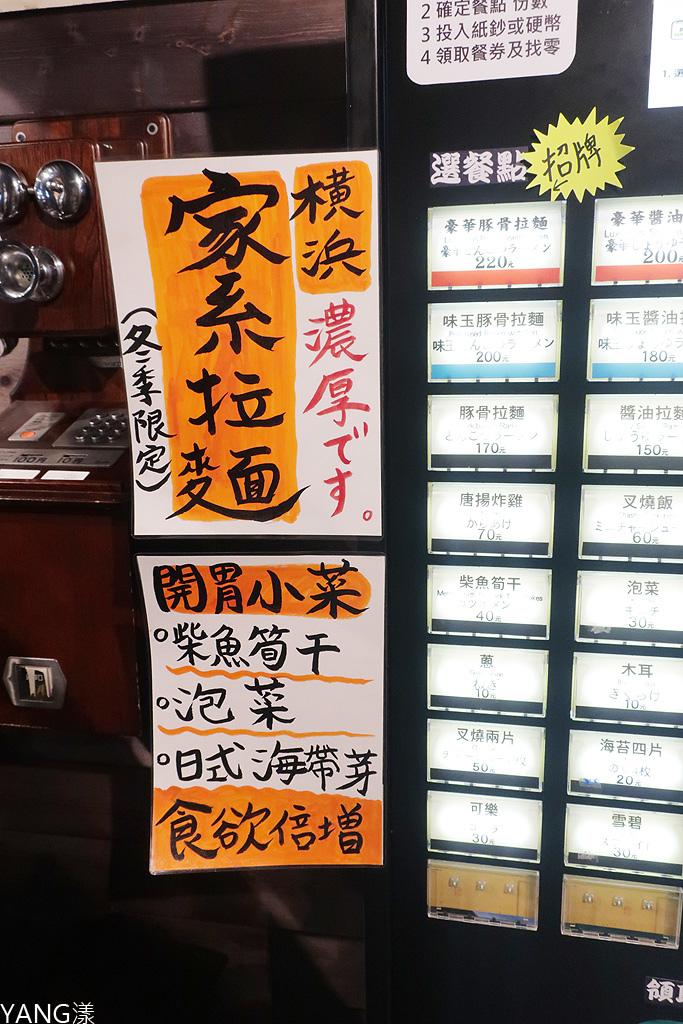 2 確定餐點 份數
3 投入紙鈔或硬幣
4 領取餐券及找零
1. 選
選餐點
招牌
橫浜
家系拉麵
濃厚です。
(冬季限定)
開胃小菜
柴魚筍干
泡菜
日式海帶芽
食欲倍增
豪華豚骨拉麵
220元
豪華醬油
200元
味玉豚骨拉麵
200元
味玉醬油拉
180元
豚骨拉麵
とんこつラーメン
170元
醬油拉麵
150元
唐揚炸雞
からあげ
70元
叉燒飯
60元
柴魚筍干
40元
泡菜
キムチ
30元
蔥
ねぎ
10元
木耳
きくらげ
10元
叉燒兩片
50元
海苔四片
のり4枚
20元
可樂
コーラ
30元
雪碧
30元
100円 10円
領取
YANG漾